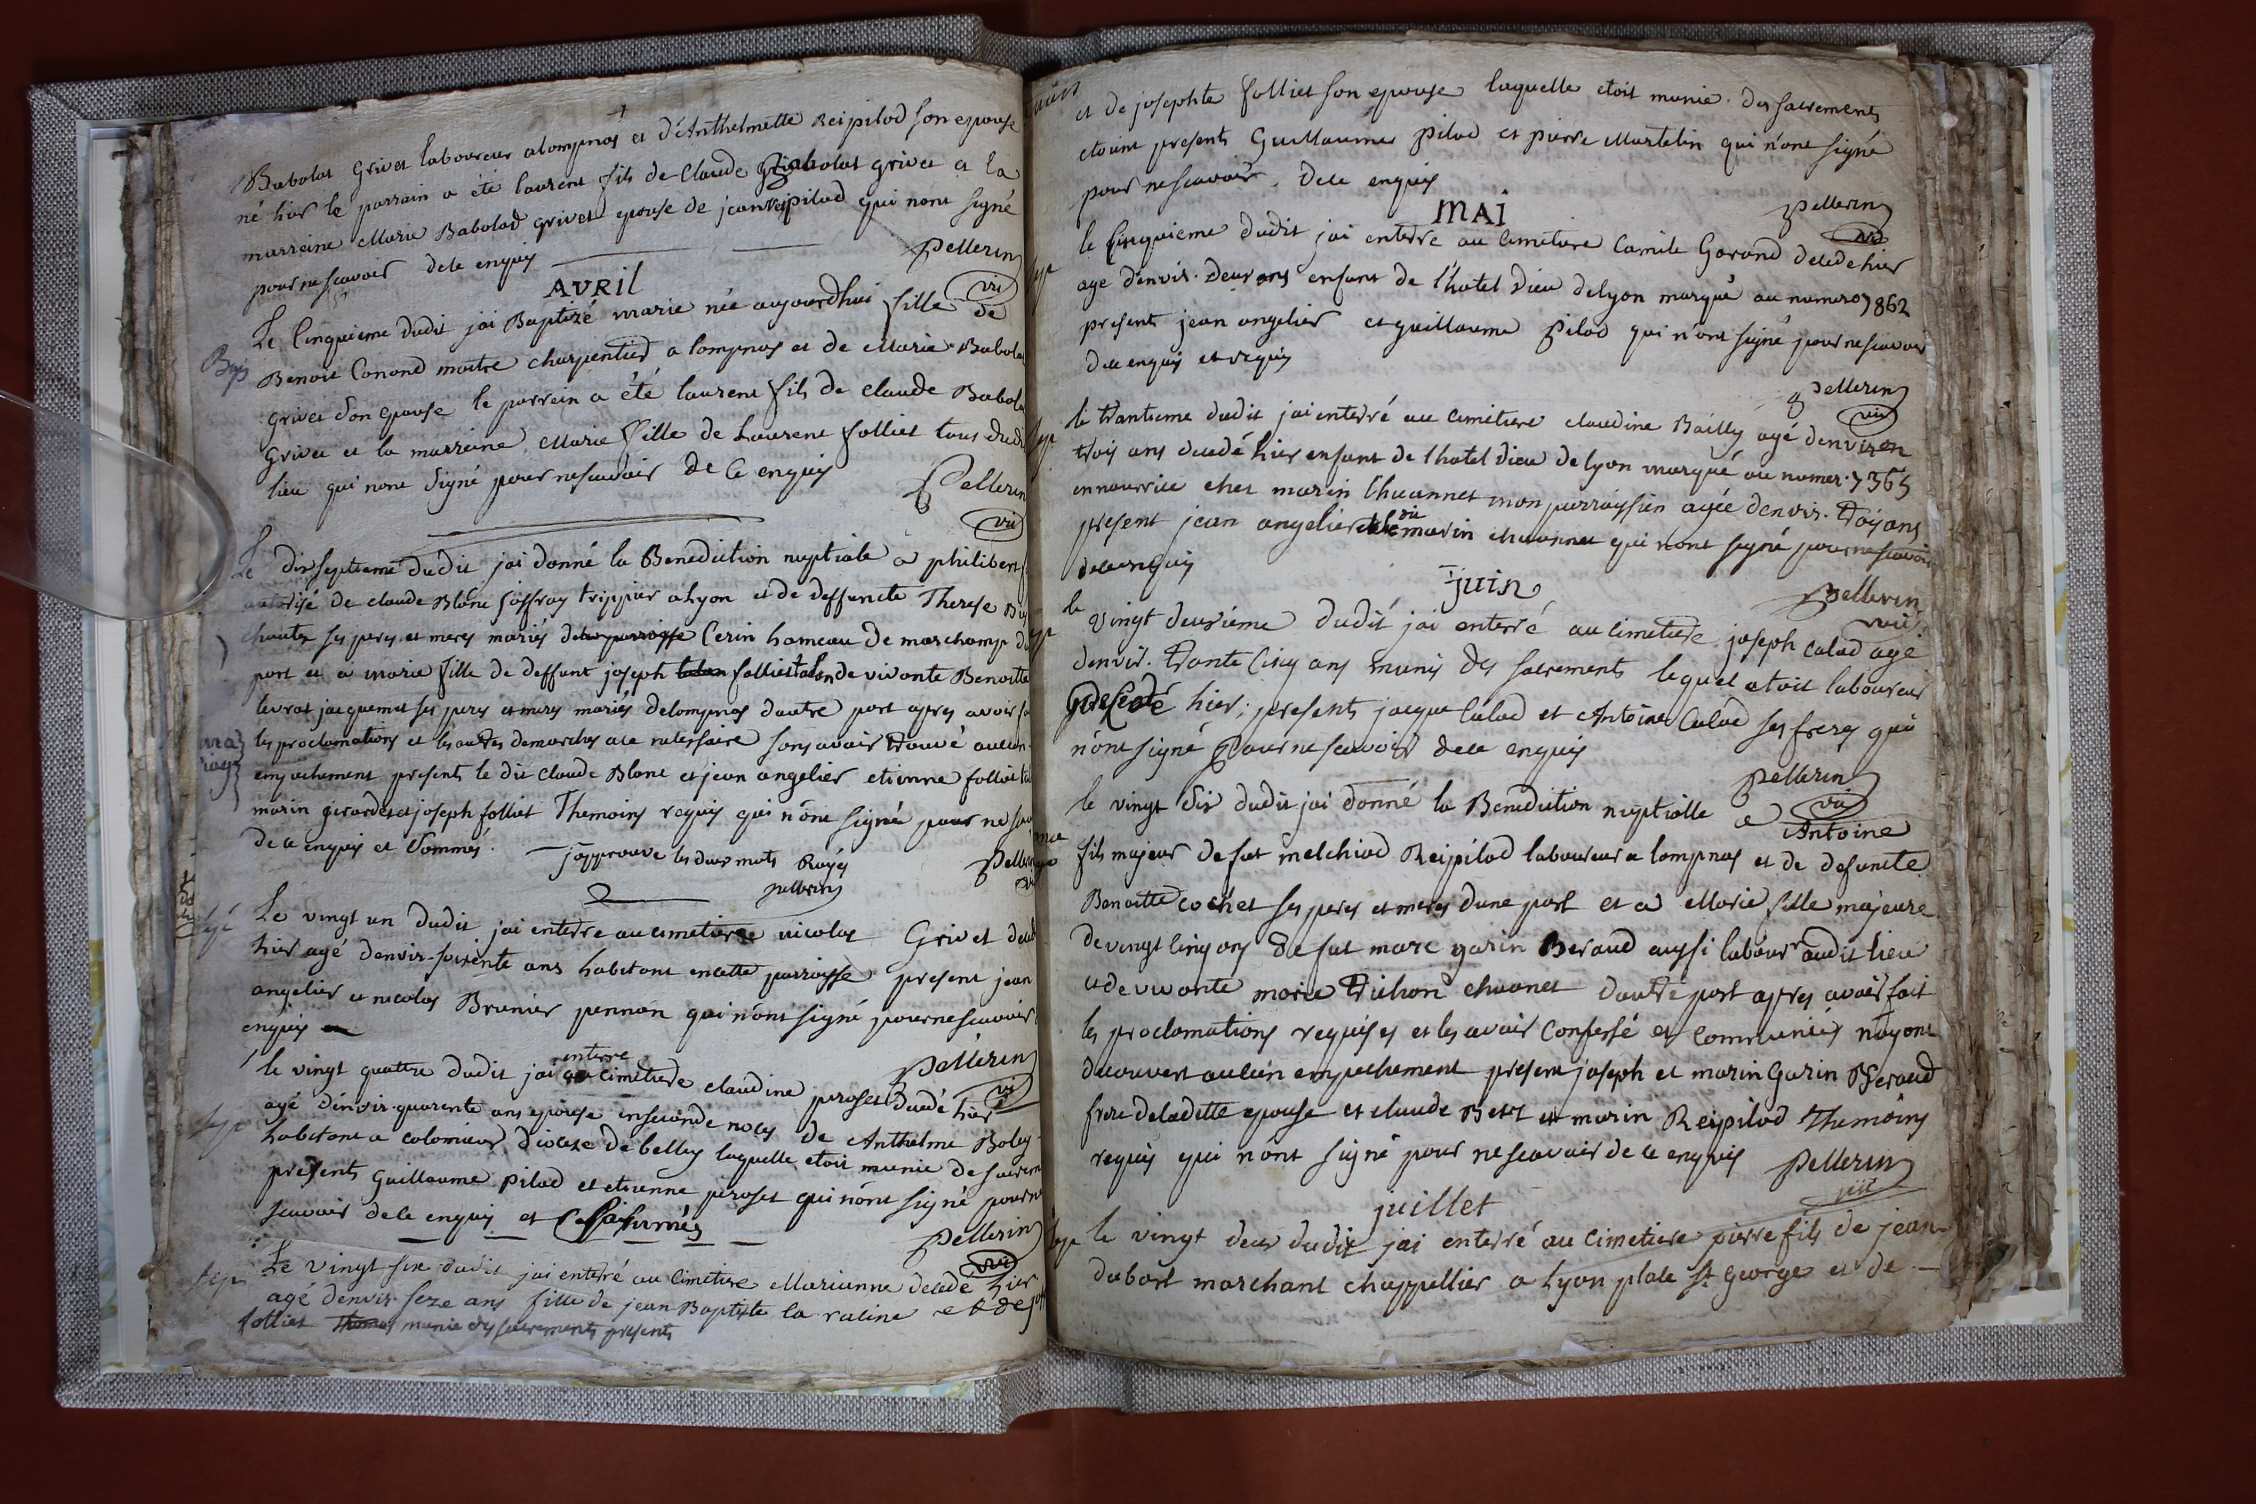 Babolat Grivet laboureur a lompnas et d'Anthelmette Reipilod son epouse
né hier le parrain a été laurent fils de Claude Babolat grivet et la
marreine Marie Babolad grivet epouse de jean reipilod qui n'ont signé
pour ne scavoir de ce enquis
Pellerin
vic
AVRil
Le Cinquieme dudit jai Baptizé marie née aujourdhui fille de
Bap
Benoit Conand maitre charpentier a lompnas et de Marie Babola
grivet son epouse le parrein a été laurent fils de Claude Babola
Grivet et la marreine Marie fille de Laurent folliet tous dudi
lieu qui n'ont signé pour ne scavoir de ce enquis
Pellerin
vic
Le dixseptieme dudit jai donné la Benediction nuptiale a philibert
autorisé de claude Blanc Joffray trippier a Lyon et de deffuncte Therese
ses peres et meres mariés Cerin hameau de marchamp
part et a marie fille de deffunt joseph folliet de vivante Benoitte
levrat jacquemet ses peres et meres mariés de lompnas dautre part apres avoir
les proclamations et les autres demarches a ce necessaire sans avoir trouvé aucun
empechement presents le dit claude Blanc et jean angelier etienne folliet
marin girardet et joseph folliet Themoins requis qui n'ont signé pour ne scav
de ce enquis et sommés.
japprouve les deux mots Rayés
pellerin
Pelle
Le vingt un dudit jai enterre au cimetierre nicolas Grivet
hier agé denvir. soixente ans habitant en cette parroisse present jean
angelier et nicolas Brunier pennon qui n'ont signé pour ne scavoir
enquis
Pellerin
vic
le vingt quattre dudit jai enterre au cimetiere claudine peroset decedé hier
agé denvir. quarente ans epouse en seconde noces de Anthelme Boley
habitant a colomieux diocese de belley laquelle etoit munie de sacrem
presents Guillaume pilod et etienne peroset qui n'ont signé pour n
scavoir de ce enquis et
Pellerin
vic
sep
Le vingt six dudit jai enterré au Cimetiere Marianne decedé hier
agé denvir. seze ans fille de jean Baptiste la racine et de jos
folliet munie des sacrements presents
et de josephte folliet son epouse laquelle etoit munie des sacrements
etoient presents Guillaume pilod et pierre Martelin qui n'ont signé
pour ne scavoir de ce enquis
pellerin
vic
MAI
le Cinquieme dudit jai enterre au cimetiere Camile Garand decede hier
age denvir. deux ans enfant de l'hotel Dieu de lyon marqué au numero 7862
presents jean angelier et guillaume pilod qui n'ont signé pour ne scavoir
de ce enquis et requis
pellerin
vic
le trantieme dudit jai enterré au cimetiere claudine Bailly agé denviron
trois ans decedé hier enfant de l'hotel dieu de lyon marqué au numer. 7365
en nourrice chez marin Chuannet mon parroissien agée denvir. troy ans
present jean angelier du marin chuannet qui n'ont signé pour ne scavoir
de ce enquis
pellerin
vic
juin
le vingt deuxieme dudit jai enterré au cimetiere joseph calad agé
denvir. trante Cinq ans munis des sacrements lequel etoit laboureur
hier; presents jacque Calad et Antoine Calad ses freres qui
n'ont signé pour ne scavoir de ce enquis
pellerin
vic
le vingt six dudit jai donné la Benediction nuptialle a Antoine
fils majeur de fut melchiod Reipilod laboureur a lompnas et de defuncte
Benoitte cochet ses peres et meres dune part et a Marie fille majeure
de vingt cinq ans de fut marc garin Beraud aussi labour.r audit lieu
et de vivante marie Trichon chuanet dautre part apres avoir fait
les proclamations requises et les avoir Confessé et Communiés nayant
decouvert aucun empechement present joseph et marin Garin Beraud
frere de ladette epouse et claude Bett et marin Reipilod Themoins
requis qui n'ont signé pour ne scavoir de ce enquis
pellerin
vic
juillet
sep
le vingt deux dudit jai enterré au Cimetiere pierre fils de jean
dubost marchant chappellier a Lyon place St George et de